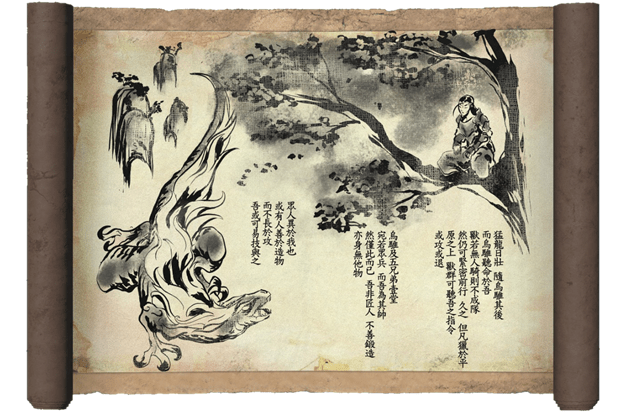 猛龍日壯 隨烏騅其後
而烏騅聽命於吾
獸若無人騎則不成隊
然仍可緊密前行 久之 但凡獵於平
原之上 獸群可聽吾之指令
或攻或退
烏騅及五兄弟壹堂
宛若眾兵 而吾為其帥
然僅此而已 吾非匠人 不善鍛造
亦身無他物
眾人異於我也
或有人善於造物
而不長於攻
吾或可易技與之